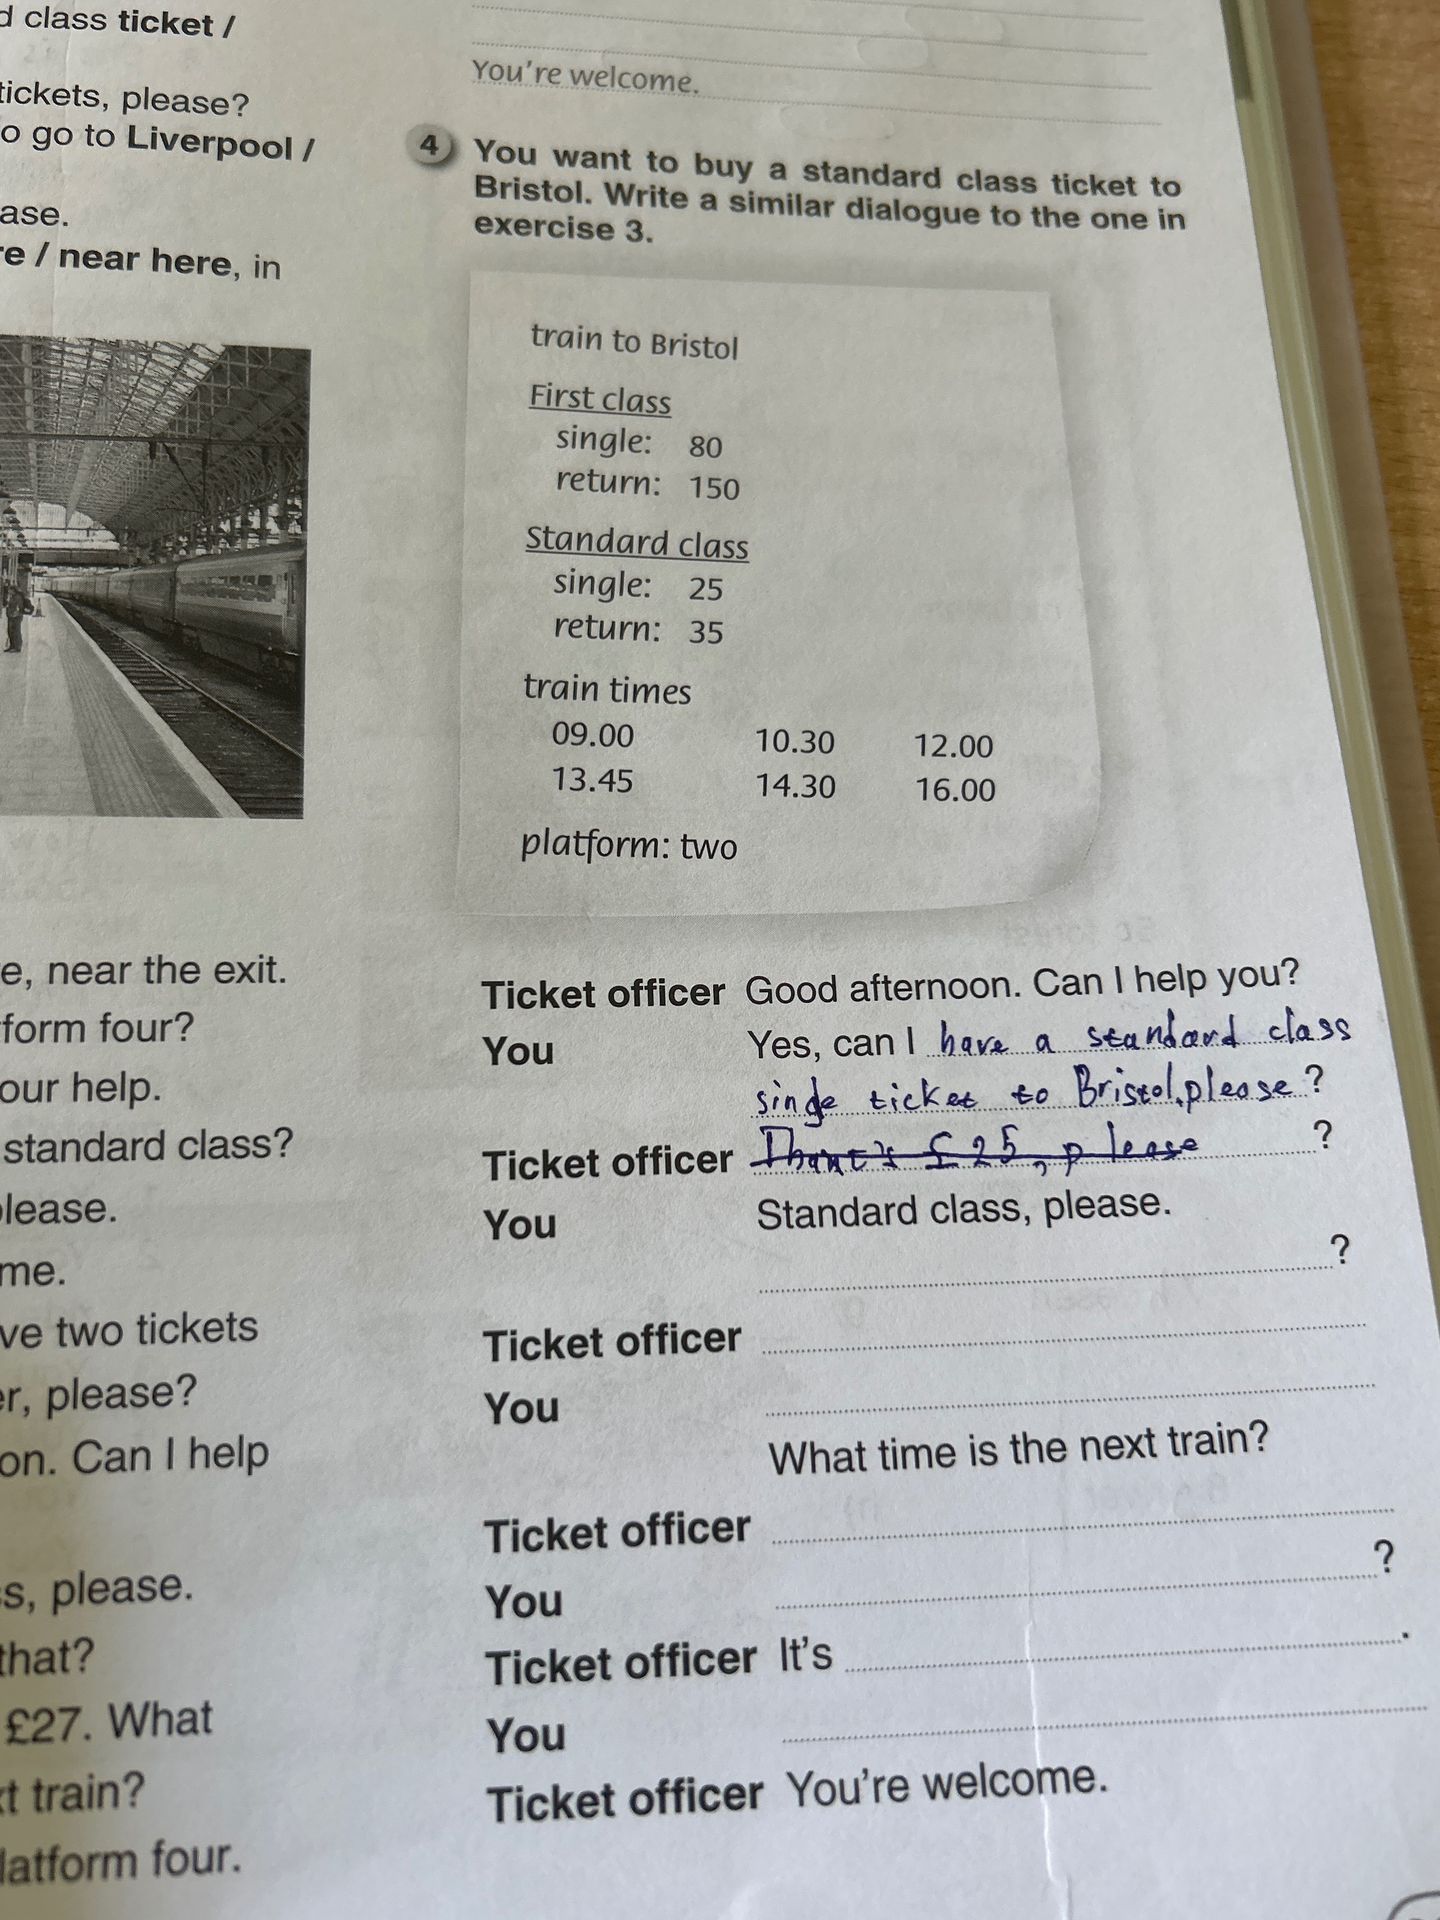 d class ticket /
tickets, please?
o go to Liverpool /
ase.
re / near here, in
e, near the exit.
form four?
our help.
standard class?
lease.
me.
ve two tickets
er, please?
on. Can I help
s, please.
that?
£27. What
t train?
latform four.
You're welcome.
4 You want to buy a standard class ticket to
Bristol. Write a similar dialogue to the one in
exercise 3.
train to Bristol
First class
single: 80
return: 150
Standard class
single: 25
return: 35
train times
09.00 10.30 12.00
13.45 14.30 16.00
platform: two
Ticket officer Good afternoon. Can I help you?
You Yes, can I have a standard class
single ticket to Bristol, please?
Ticket officer That's £25, please ?
You Standard class, please.
?
Ticket officer
You
What time is the next train?
Ticket officer
You ?
Ticket officer It's .
You
Ticket officer You're welcome.